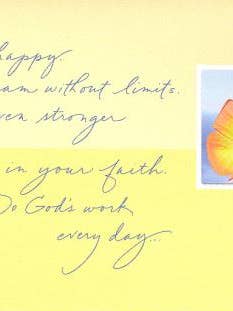 happy.
am without limits.
ven stronger
in your faith.
Do God's work
every day...